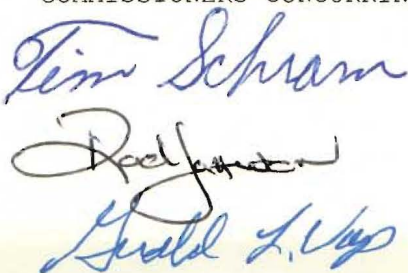 COMMISSIONERS CONCURRIN
Tim Schram
Rod
Gerald L. Vap